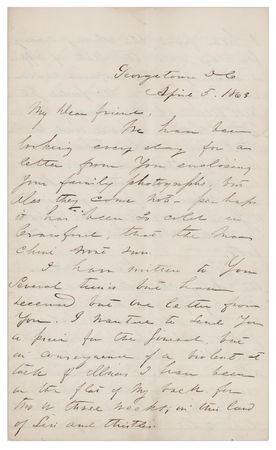 Georgetown D C
April 5. 1863
My Dear friend,
We have been
looking every day for a
letter from You enclosing
Your family photographs, but
alas they come not - perhaps
it has been so cold in
Crawford, that the
chine wont run.
I have written to You
Several times but have
received but one letter from
You. I wanted to send You
a piece for the Journal, but
in consequence of a violent at
tack of illness I have been
on the flat of My back for
two or three weeks, in this land
of Sin and thistles.